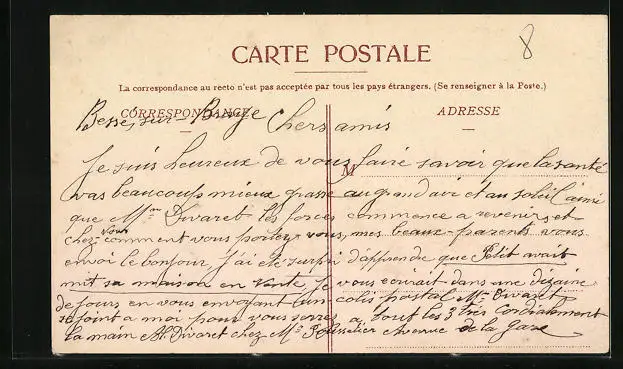 8
CARTE POSTALE
La correspondance au recto n'est pas acceptée par tous les pays étrangers. (Se renseigner à la Poste.)
CORRESPONDANCE
ADRESSE
M
Besse sur Braye Chers amis
Je suis heureux de vous faire savoir que la santé
vas beaucoup mieux grasse au grand air et au soleil ainsi
que Mme Divaret les forces commence a revenir et
chez vous comment vous portez-vous, mes beaux-parents vous
envoi le bonjour, j'ai été surpri d'apprendre que Petit avait
mit sa maison en vente, je vous ecrirait dans une dizaine
de jours en vous envoyant un colis postal Mme Divaret
se joint a moi pour vous serrer a tout les 3 très cordialement
la main Al. Divaret chez Mr Avenue de la Gare